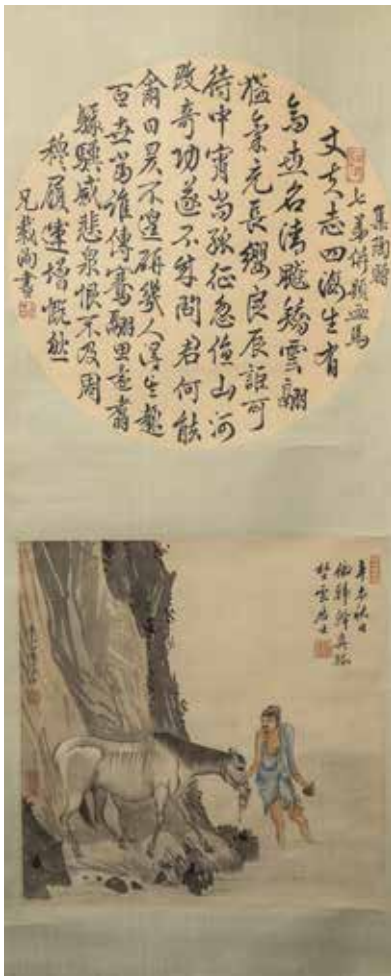 集陶詩
丈夫志四海生有
高世名清飈矯雲翮
猛氣充長纓良辰詎可
待中宵尚孤征忽值山河
改奇功遂不成問君何能
爾日昃不遑研幾人得生趣
百世當誰傳騫翮思遠翥
騄驥感悲泉恨不及周
穆履運增慨然
兄載洵書
辛未秋日
倣韓幹真跡
野雲居士